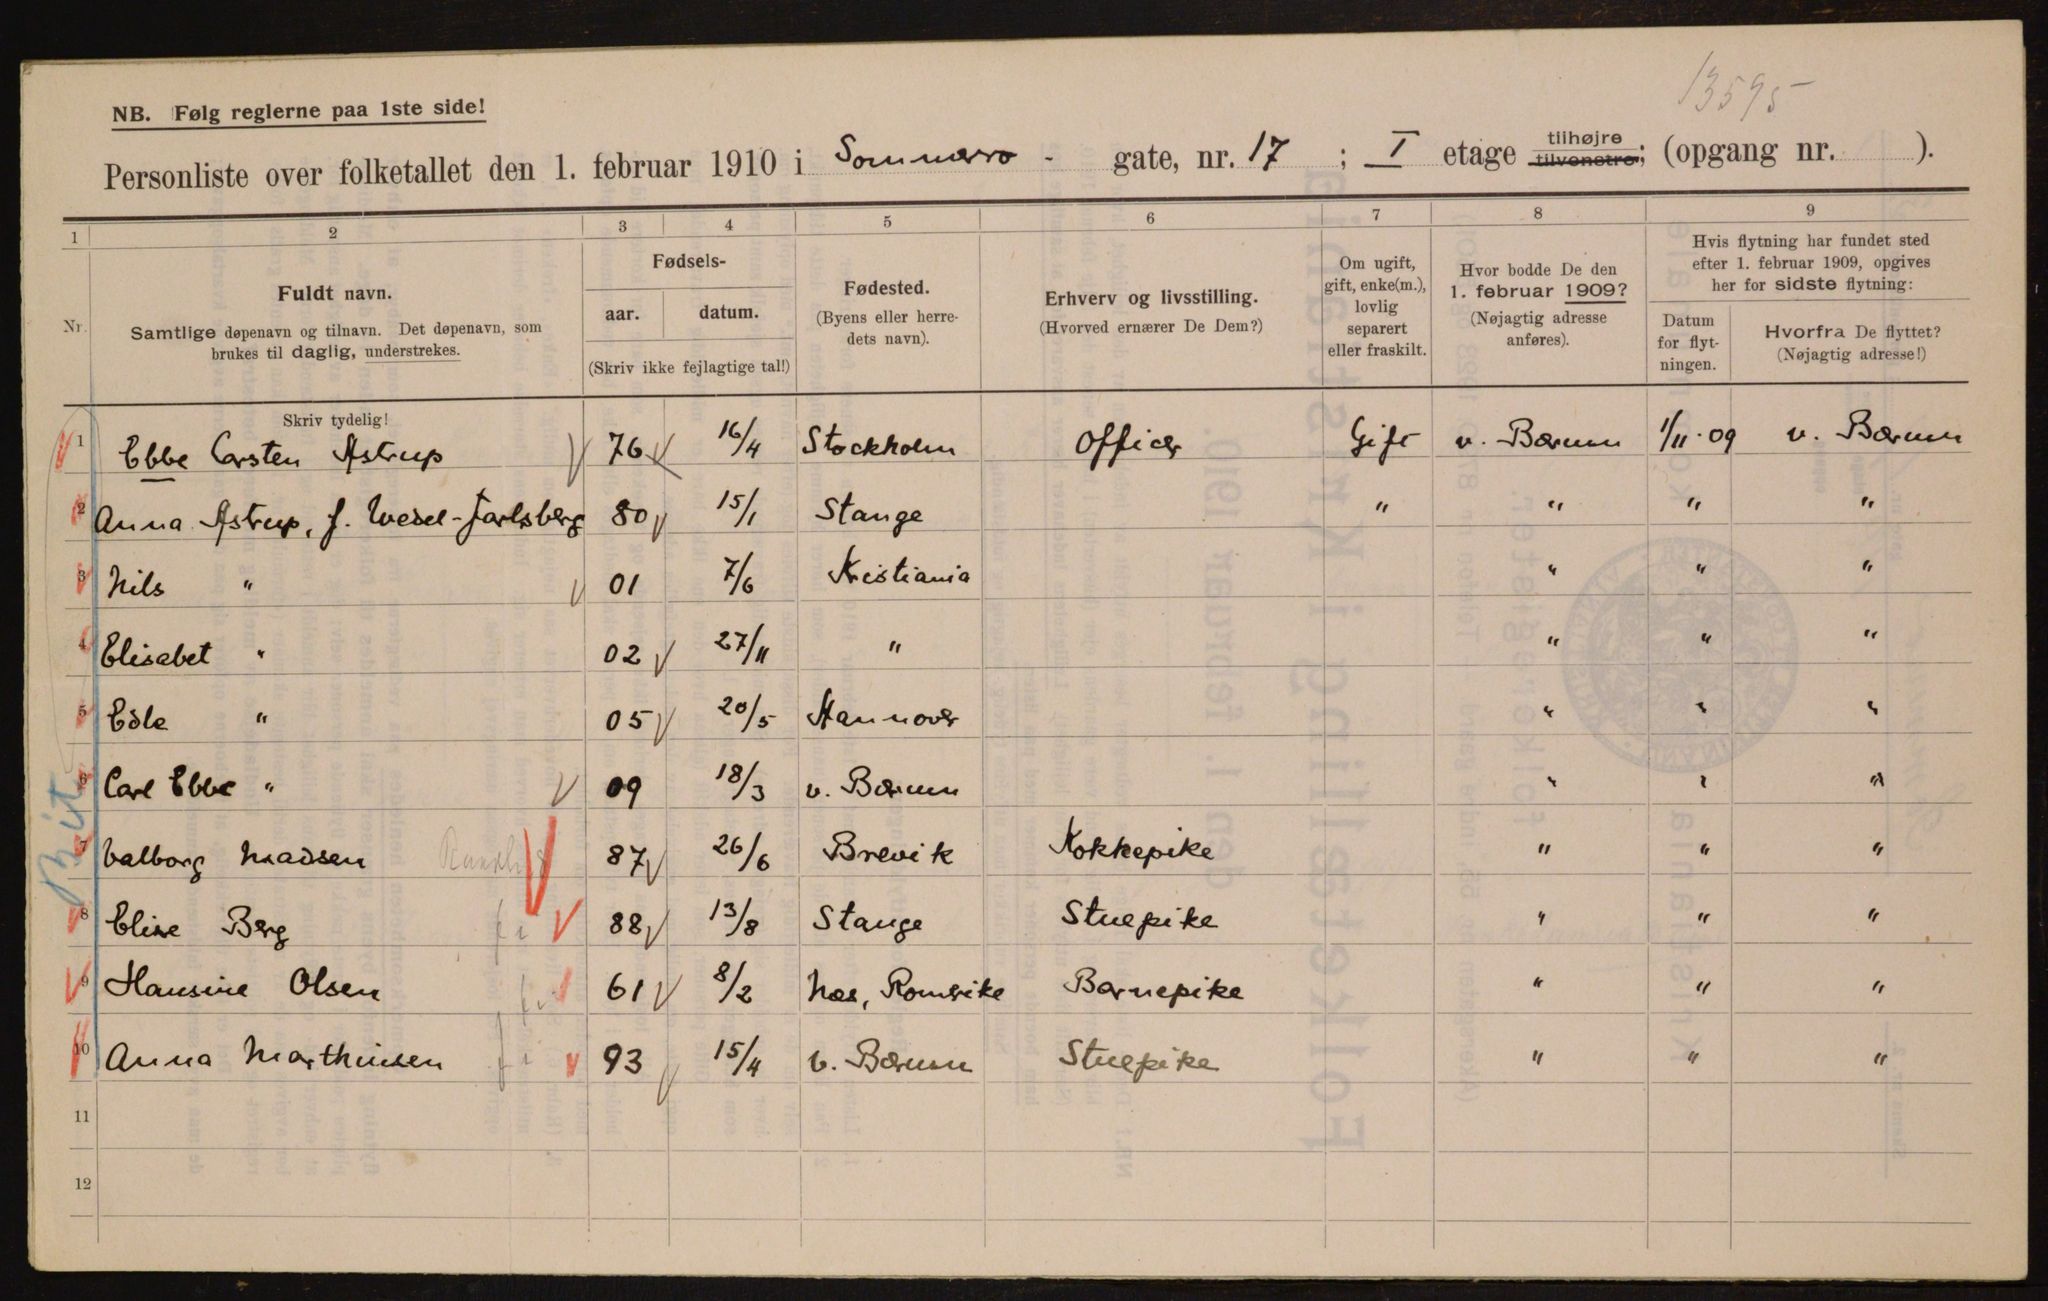 13595
NB. Følg reglerne paa 1ste side!
Personliste over folketallet den 1. februar 1910 i Sommerro - gate, nr. 17 ; I etage tilhøjre tilvenstre; (opgang nr. ).
1 2 3 4 5 6 7 8 9
Nr. Fuldt navn. Samtlige døpenavn og tilnavn. Det døpenavn, som brukes til daglig, understrekes.
Fødsels- aar. datum. (Skriv ikke fejlagtige tal!)
Fødested. (Byens eller herredets navn).
Erhverv og livsstilling. (Hvorved ernærer De Dem?)
Om ugift, gift, enke(m.), lovlig separert eller fraskilt.
Hvor bodde De den 1. februar 1909? (Nøjagtig adresse anføres).
Hvis flytning har fundet sted efter 1. februar 1909, opgives her for sidste flytning:
Datum for flytningen.
Hvorfra De flyttet? (Nøjagtig adresse!)
Skriv tydelig!
1 Ebbe Carsten Astrup 76 16/4 Stockholm Officer Gift v. Bærum 1/11.09 v. Bærum
2 Anna Astrup, f. Wedel-Jarlsberg 80 15/1 Stange " " " "
3 Nils " 01 7/6 Kristiania " " "
4 Elisabet " 02 27/11 " " " "
5 Edle " 05 20/5 Hannover " " "
6 Carl Ebbe " 09 18/3 v. Bærum " " "
7 Valborg Madsen 87 26/6 Brevik Kokkepike " " "
8 Elise Berg 88 13/8 Stange Stuepike " " "
9 Hansine Olsen 61 8/2 Nes, Romerike Barnepike " " "
10 Anna Marthinsen 93 15/4 v. Bærum Stuepike " " "
11
12